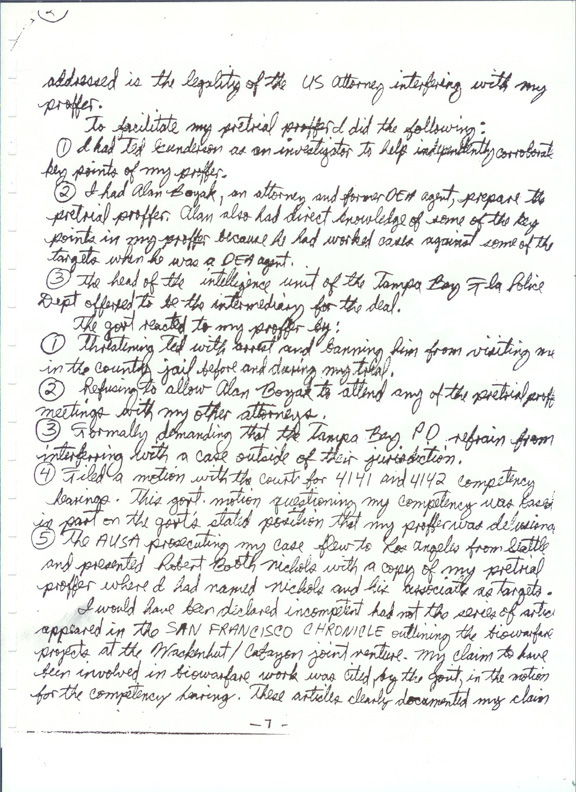 addressed is the legality of the US Attorney interfering with my
proffer.
To facilitate my pretrial proffer I did the following:
① I had Ted Gunderson as an investigator to help independently corroborate
key points of my proffer.
② I had Alan Boyak, an attorney and former DEA agent, prepare the
pretrial proffer. Alan also had direct knowledge of some of the key
points in my proffer because he had worked cases against some of the
targets when he was a DEA agent.
③ the head of the intelligence unit of the Tampa Bay Fla Police
Dept offered to be the intermediary for the deal.
The govt reacted to my proffer by:
① threatening Ted with arrest and banning him from visiting me
in the county jail before and during my trial.
② Refusing to allow Alan Boyak to attend any of the pretrial proff
meetings with my other attorneys.
③ Formally demanding that the Tampa Bay PD refrain from
interfering with a case outside of their jurisdiction.
④ Filed a motion with the court for 4141 and 4142 competency
hearings. This govt. motion questioning my competency was based
in part on the govt's stated position that my proffer was delusiona
⑤ the AUSA prosecuting my case flew to Los Angeles from Seattle
and presented Robert Booth Nichols with a copy of my pretrial
proffer where I had named Nichols and his associate as targets.
I would have been declared incompetent had not the series of artic
appeared in the SAN FRANCISCO CHRONICLE outlining the biowarfare
projects at the Wackenhut/Cabazon joint venture. My claim to have
been involved in biowarfare work was cited by the govt. in the motion
for the competency hearing. These articles clearly documented my claim
-7-